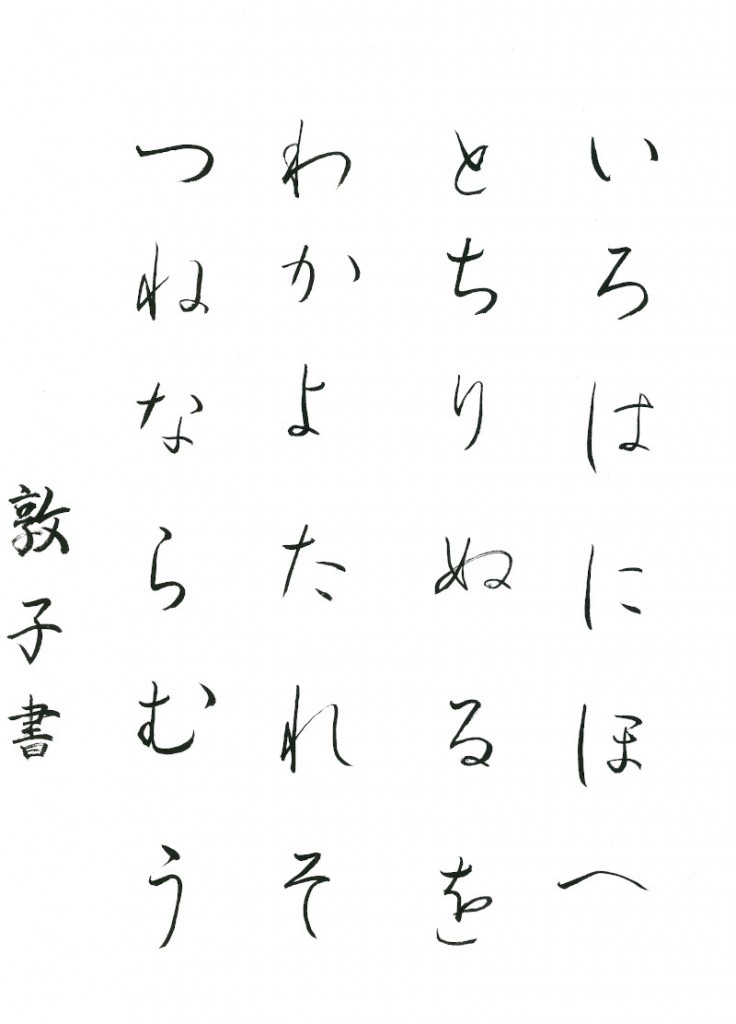 いろはにほへ
とちりぬるを
わかよたれそ
つねならむう
敦子書